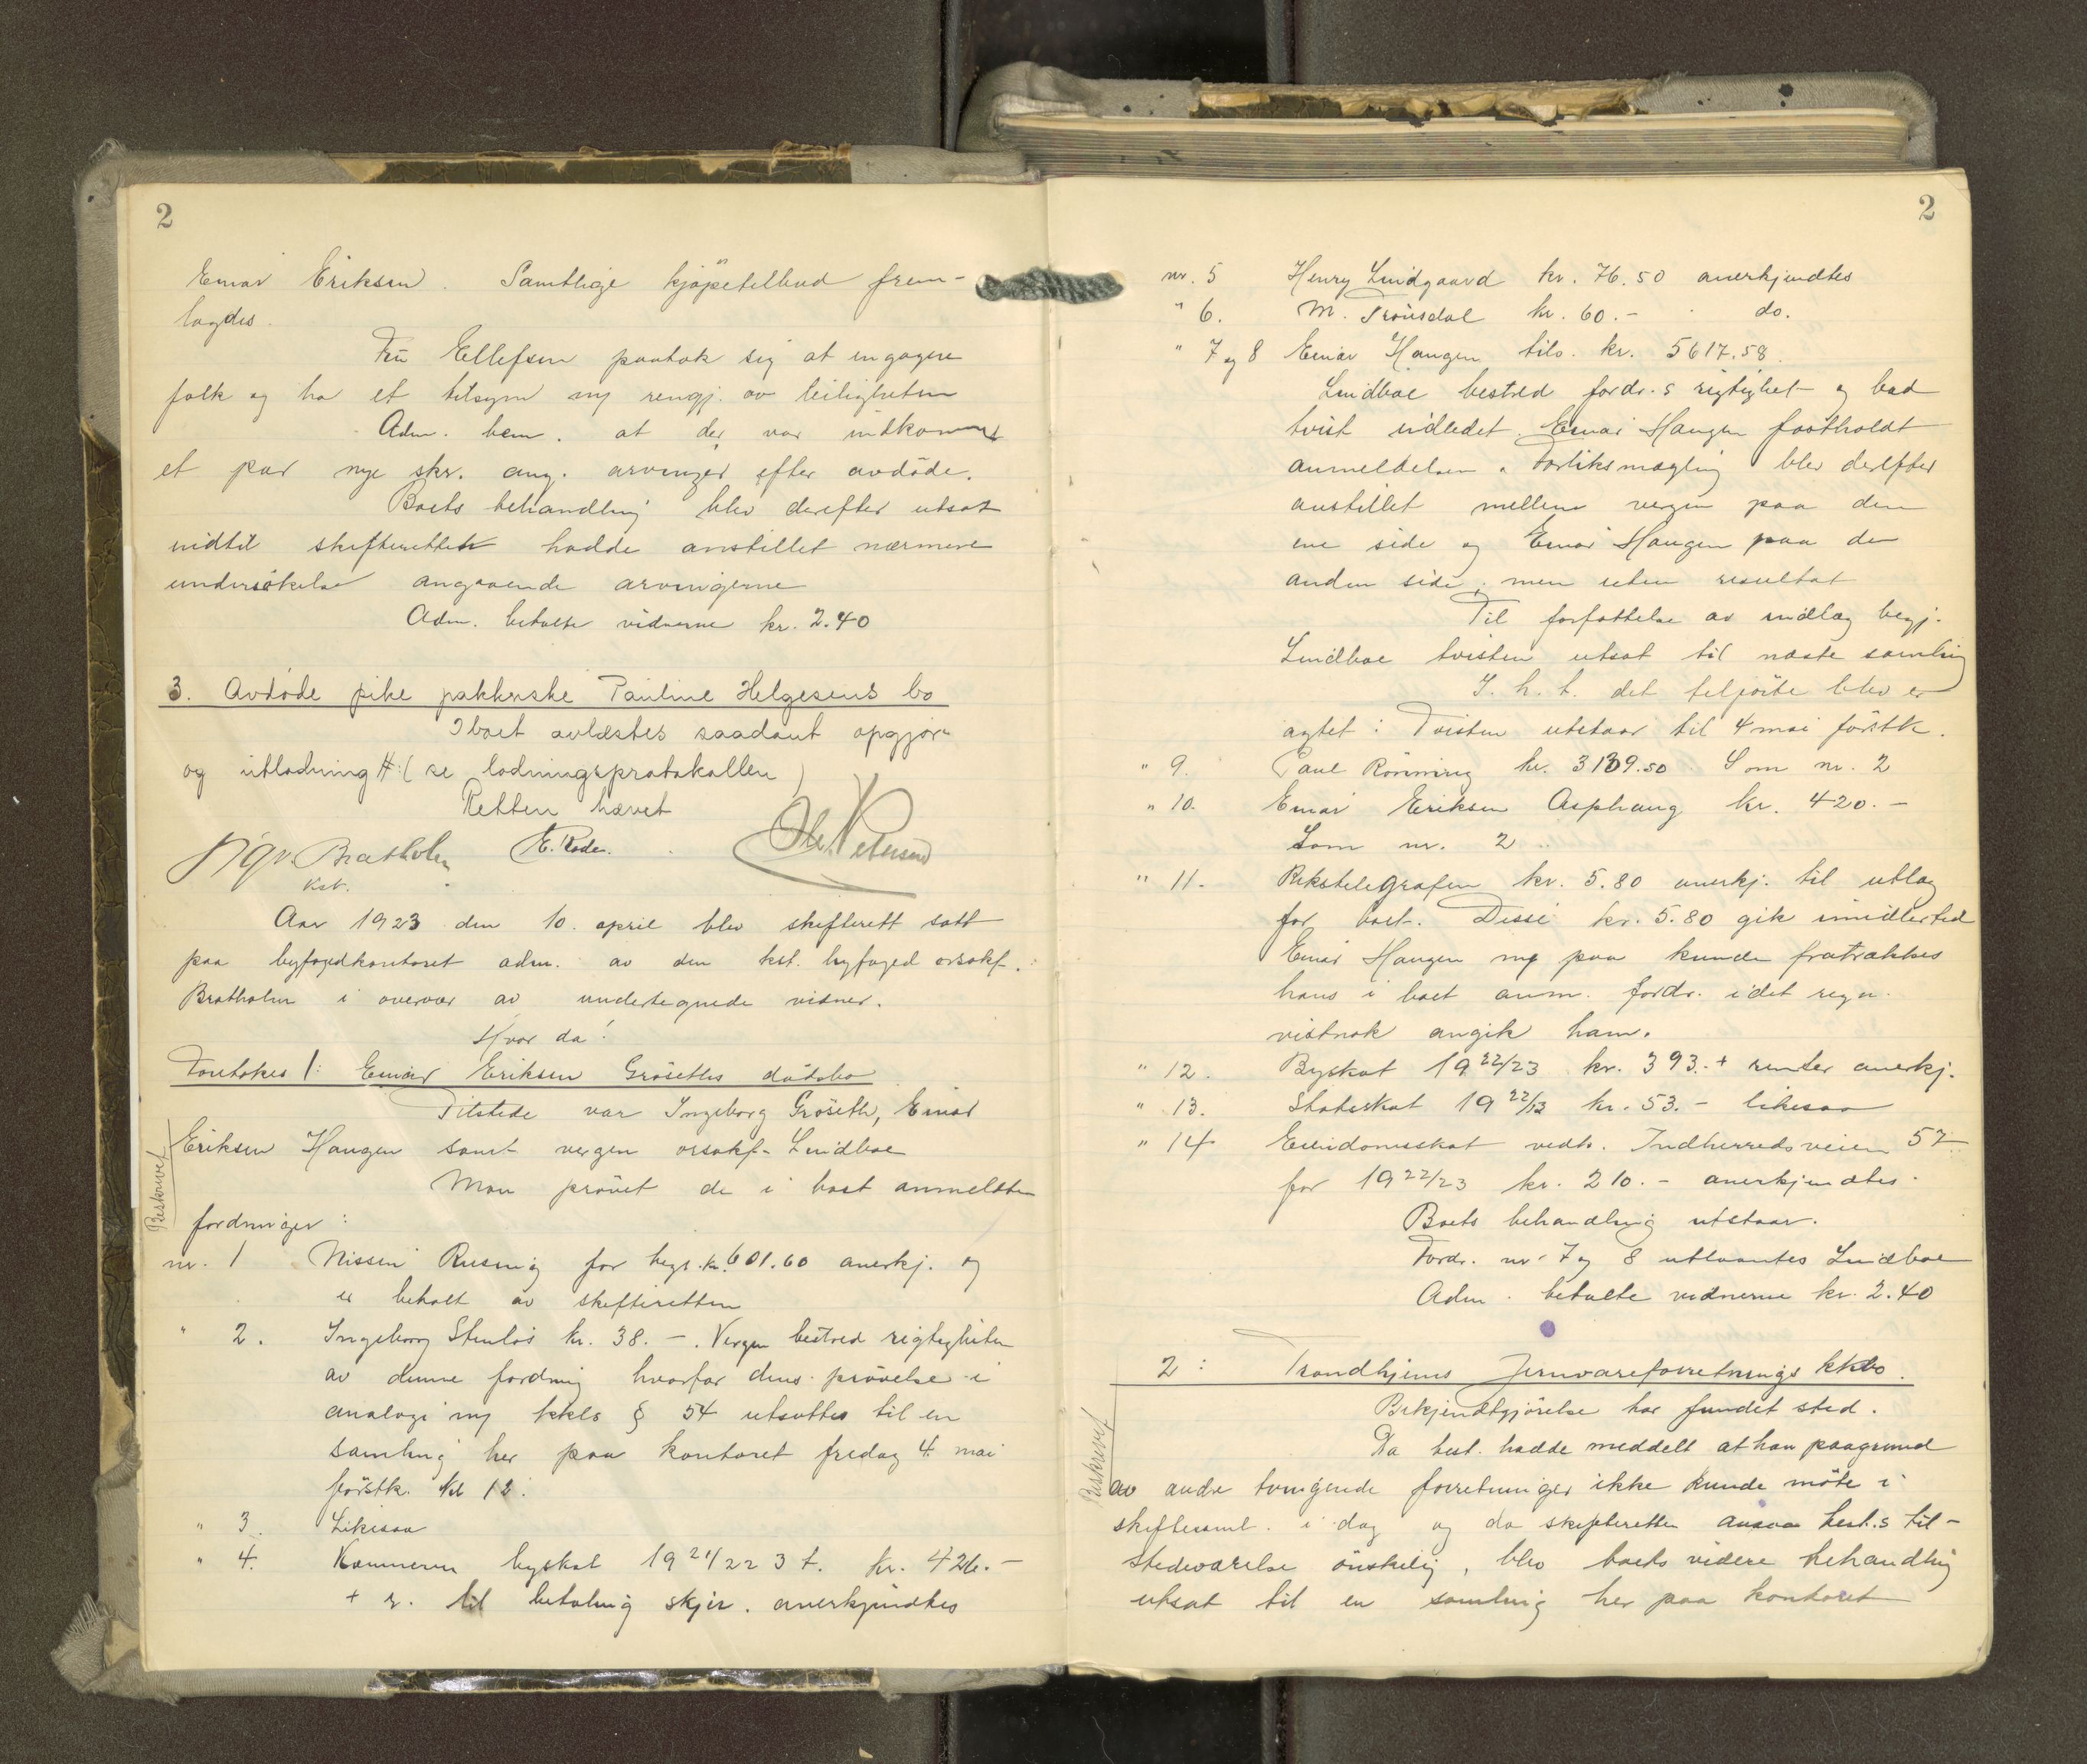 2
Einar Eriksen. Samtlige kjöpetilbud frem-
lagdes.
Fru Ellefsen paatok sig at engagere
folk og ha et tilsyn m/ rengj. av leiligheten
Adm. bem. at der var indkommet
et par nye skr. ang. arvinger efter avdöde.
Boets behandling blev derefter utsat
indtil skifteretten hadde anstillet nærmere
undersökelse angaaende arvingerne
Adm. betalte vidnerne kr. 2.40
3. Avdöde pike pakkerske Pauline Helgesens bo
I boet avlæstes saadant opgjør
og utlodning #: (se lodningsprotokollen)
Retten hævet
Sigv. Bratholm E. Rode. Ole Petersen
kst.
Aar 1923 den 10. april blev skifterett satt
paa byfogedkontoret adm. av den kst. byfoged orsakf.
Bratholm i overvær av undertegnede vidner.
Hvor da!
Foretokes 1: Einar Eriksen Gröseths dödsbo
Tilstede var Ingeborg Gröseth, Einar
Eriksen Haugen samt vergen orsakf. Lindboe
Beskrevet
Man prövet de i boet anmeldte
fordringer:
nr. 1 Nissen Rusing for begr. kr. 601.60 anerkj. og
er betalt av skifteretten
" 2. Ingeborg Stenlös kr. 38.-. Vergen bestred rigtigheten
av denne fordring hvorfor dens prövelse i
analogi m/ kkls § 54 utsattes til en
samling her paa kontoret fredag 4. mai
förstk. kl 12.
" 3. Likesaa
" 4. Kæmneren byskat 1921/22 3 t. kr. 426.-
+ r. til betaling skjer. anerkjendtes
2
nr. 5 Henry Lindgaard kr. 76.50 anerkjendtes
" 6. M. Trönsdal kr. 60.- do.
" 7 og 8 Einar Haugen tils. kr. 5617.58.
Lindboe bestred fordr.s rigtighet og bad
tvist indledet. Einar Haugen fastholdt
anmeldelsen. Forliksmægling blev derefter
anstillet mellem vergen paa den
ene side og Einar Haugen paa den
anden side, men uten resultat
Til forfattelse av indlæg begj.
Lindboe tvisten utsat til næste samling
I. h. t. det tilförte blev er
agtet: Tvisten utstaar til 4 mai förstk.
" 9. Paul Rönning kr. 3139.50 Som nr. 2
" 10. Einar Eriksen Asphaug kr. 420.-
Som nr. 2
" 11. Rikstelegrafen kr. 5.80 anerkj. til utlæg
for boet. Disse kr. 5.80 gik imidlertid
Einar Haugen m/ paa kunde fratrækkes
hans i boet anm. fordr. idet regn.
vistnok angik ham.
" 12. Byskat 1922/23 kr. 393.+ renter anerkj.
" 13. Statsskat 1922/23 kr. 53.- likesaa
" 14 Eiendomsskat vedk. Indherredsveien 57
for 1922/23 kr. 210.- anerkjendtes.
Boets behandling utstaar.
Fordr. nr. 7 og 8 utlaantes Lindboe
Adm. betalte vidnerne kr. 2.40
2: Trondhjems Jernvareforretnings kkbo.
Bekjendtgjörelse har fundet sted.
Da best. hadde meddelt at han paagrund
Beskrevet
av andre tvingende forretninger ikke kunde möte i
skiftesaml. i dag og da skifteretten ansaa best.s til-
stedeværelse önskelig, blev boets videre behandling
utsat til en samling her paa kontoret